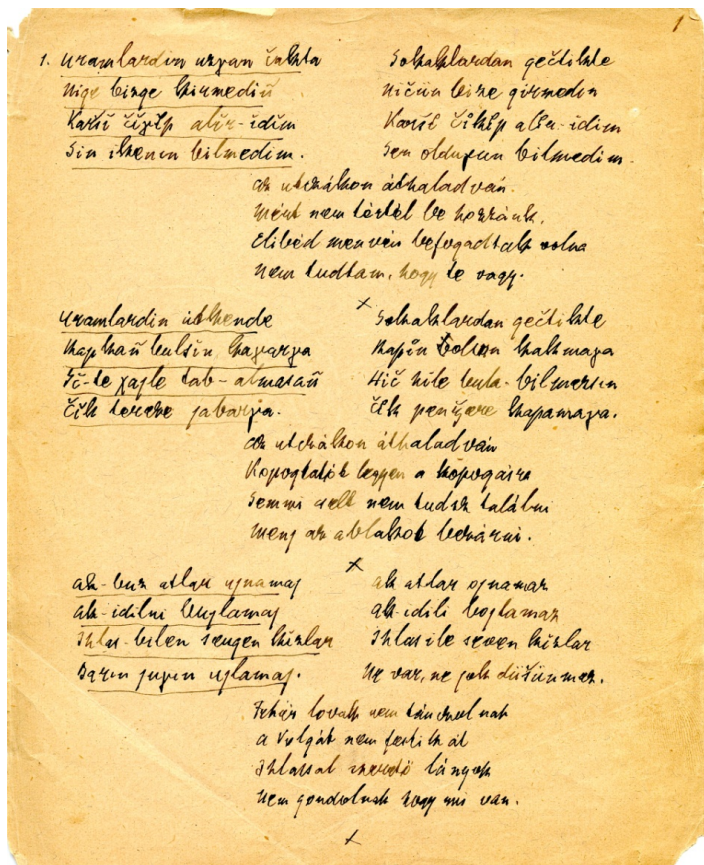 1
1. Uramlardin uzgan čakta
Nige bizge kirmediñ
Karši čigip alir-idim
Sin ikenin bilmedim.
Sokaklardan gečtikte
Ničün bize girmedin
Karši čikip alir-idim
Sen oldugun bilmedim.
Az utczákon áthaladván.
Miért nem tértél be hozzánk.
Elibéd menvén befogadtalak volna
Nem tudtam, hogy te vagy.
Uramlardin ütkende
Kapkañ bulsin kagarga
Hič
čik tereze jabarga.
x
Sokaklardan gečtikte
Kapin olsun kakmaga
Hič hile bula-bilmersin
čik penžere kapamaga.
az utczákon áthaladván
Kopogtatód legyen a kopogásra
Semmi cselt nem tudsz találni
Menj az ablakot bezárni.
x
ak-buz atlar ujnamaj
ak-idilni buylamaj
Ihlas-bilen seugen kizlar
Barin jugin ujlamaj.
ak atlar ojnamaz
ak-idili bojlamaz
Ihlas ile seven kizlar
Ne var, ne jok düšünmez.
Fehér lovak nem tánczolnak
a Volgát nem
Ihlassal szerető lányok
Nem gondolnak hogy mi van.
x